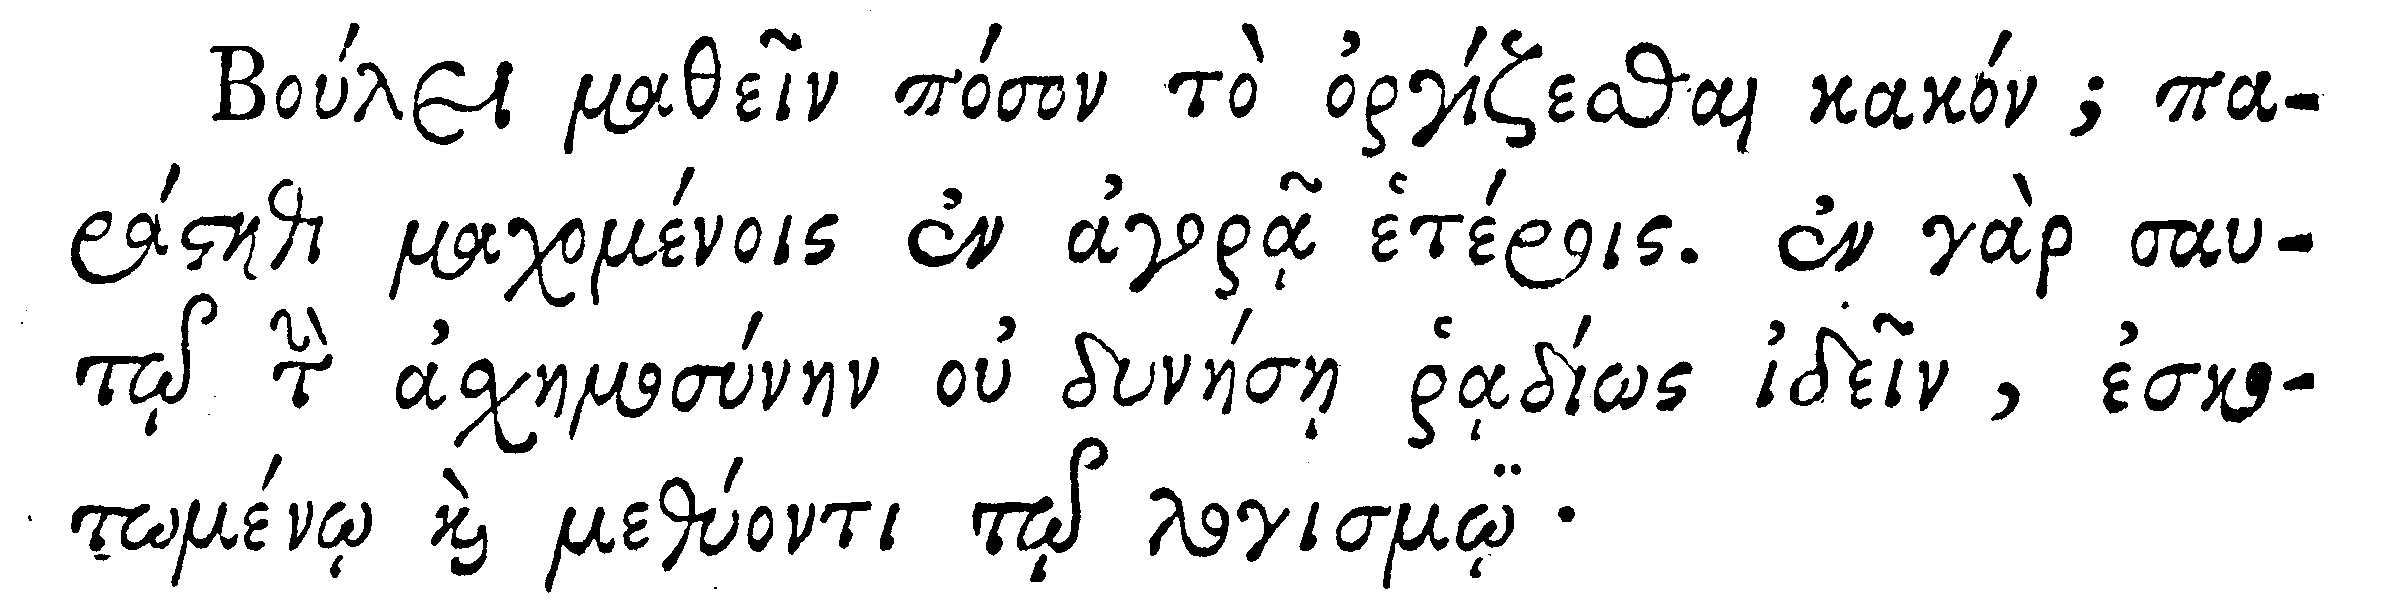 Βούλει μαθεῖν πόσον τὸ ὀργίζεσθαι κακόν ; πα-
ράστηθι μαχομένοις ἐν ἀγορᾷ ἑτέροις. ἐν γὰρ σαυ-
τῷ τὴν ἀσχημοσύνην οὐ δυνήσῃ ῥᾳδίως ἰδεῖν , ἐσκο-
τωμένῳ καὶ μεθύοντι τῷ λογισμῷ.